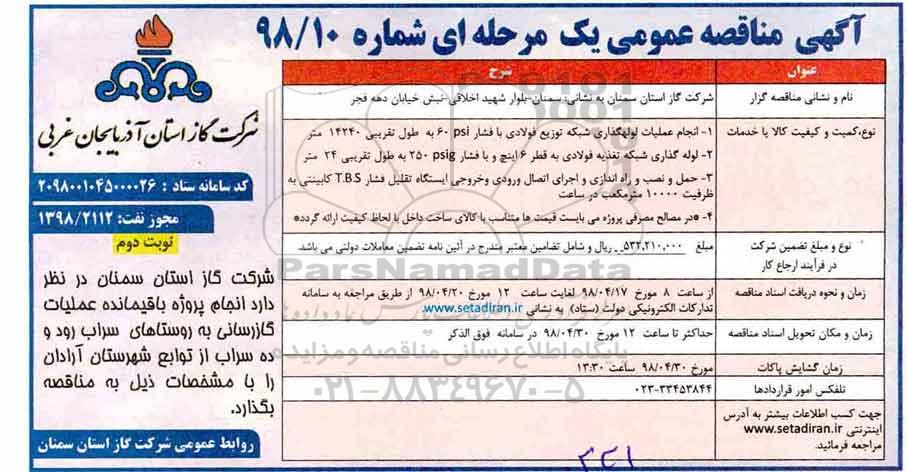 آگهی مناقصه عمومی یک مرحله ای شماره ۹۸/۱۰
شرکت گاز استان آذربایجان غربی
کد سامانه ستاد : ۲۰۹۸۰۰۱۰۴۵۰۰۰۰۲۶
مجوز نفت: ۱۳۹۸/۲۱۱۲
نوبت دوم
شرکت گاز استان سمنان در نظر
دارد انجام پروژه باقیمانده عملیات
گازرسانی به روستاهای سراب رود و
ده سراب از توابع شهرستان آرادان
را با مشخصات ذیل به مناقصه
بگذارد.
روابط عمومی شرکت گاز استان سمنان
عنوان
شرح
نام و نشانی مناقصه گزار
شرکت گاز استان سمنان به نشانی: سمنان-بلوار شهید اخلاقی-نبش خیابان دهه فجر
نوع،کمیت و کیفیت کالا یا خدمات
۱- انجام عملیات لوله‌گذاری شبکه توزیع فولادی با فشار ۶۰ psi به طول تقریبی ۱۴۲۴۰ متر
۲- لوله گذاری شبکه تغذیه فولادی به قطر ۶ اینچ و با فشار ۲۵۰ psig به طول تقریبی ۲۴ متر
۳- حمل و نصب و راه اندازی و اجرای اتصال ورودی وخروجی ایستگاه تقلیل فشار T.B.S کابینتی به
ظرفیت ۱۰۰۰۰ مترمکعب در ساعت
۴- *در مصالح مصرفی پروژه می بایست قیمت ها متناسب با کالای ساخت داخل با لحاظ کیفیت ارائه گردد*
نوع و مبلغ تضمین شرکت
در فرآیند ارجاع کار
مبلغ ۵۳۲,۲۱۰,۰۰۰ ریال و شامل تضامین معتبر مندرج در آئین نامه تضمین معاملات دولتی می باشد.
زمان و نحوه دریافت اسناد مناقصه
از ساعت ۸ مورخ ۹۸/۰۴/۱۷ لغایت ساعت ۱۲ مورخ ۹۸/۰۴/۲۰ از طریق مراجعه به سامانه
تدارکات الکترونیکی دولت (ستاد) به نشانی www.setadiran.ir
زمان و مکان تحویل اسناد مناقصه
حداکثر تا ساعت ۱۲ مورخ ۹۸/۰۴/۳۰ در سامانه فوق الذکر
زمان گشایش پاکات
مورخ ۹۸/۰۴/۳۰ ساعت ۱۳:۳۰
تلفکس امور قراردادها
۰۲۳-۳۳۴۵۳۸۴۴
جهت کسب اطلاعات بیشتر به آدرس
اینترنتی www.setadiran.ir
مراجعه فرمائید.
ParsNamadData
پایگاه اطلاع رسانی مناقصه و مزایده
۰۲۱-۸۸۳۴۹۶۷۰-۵